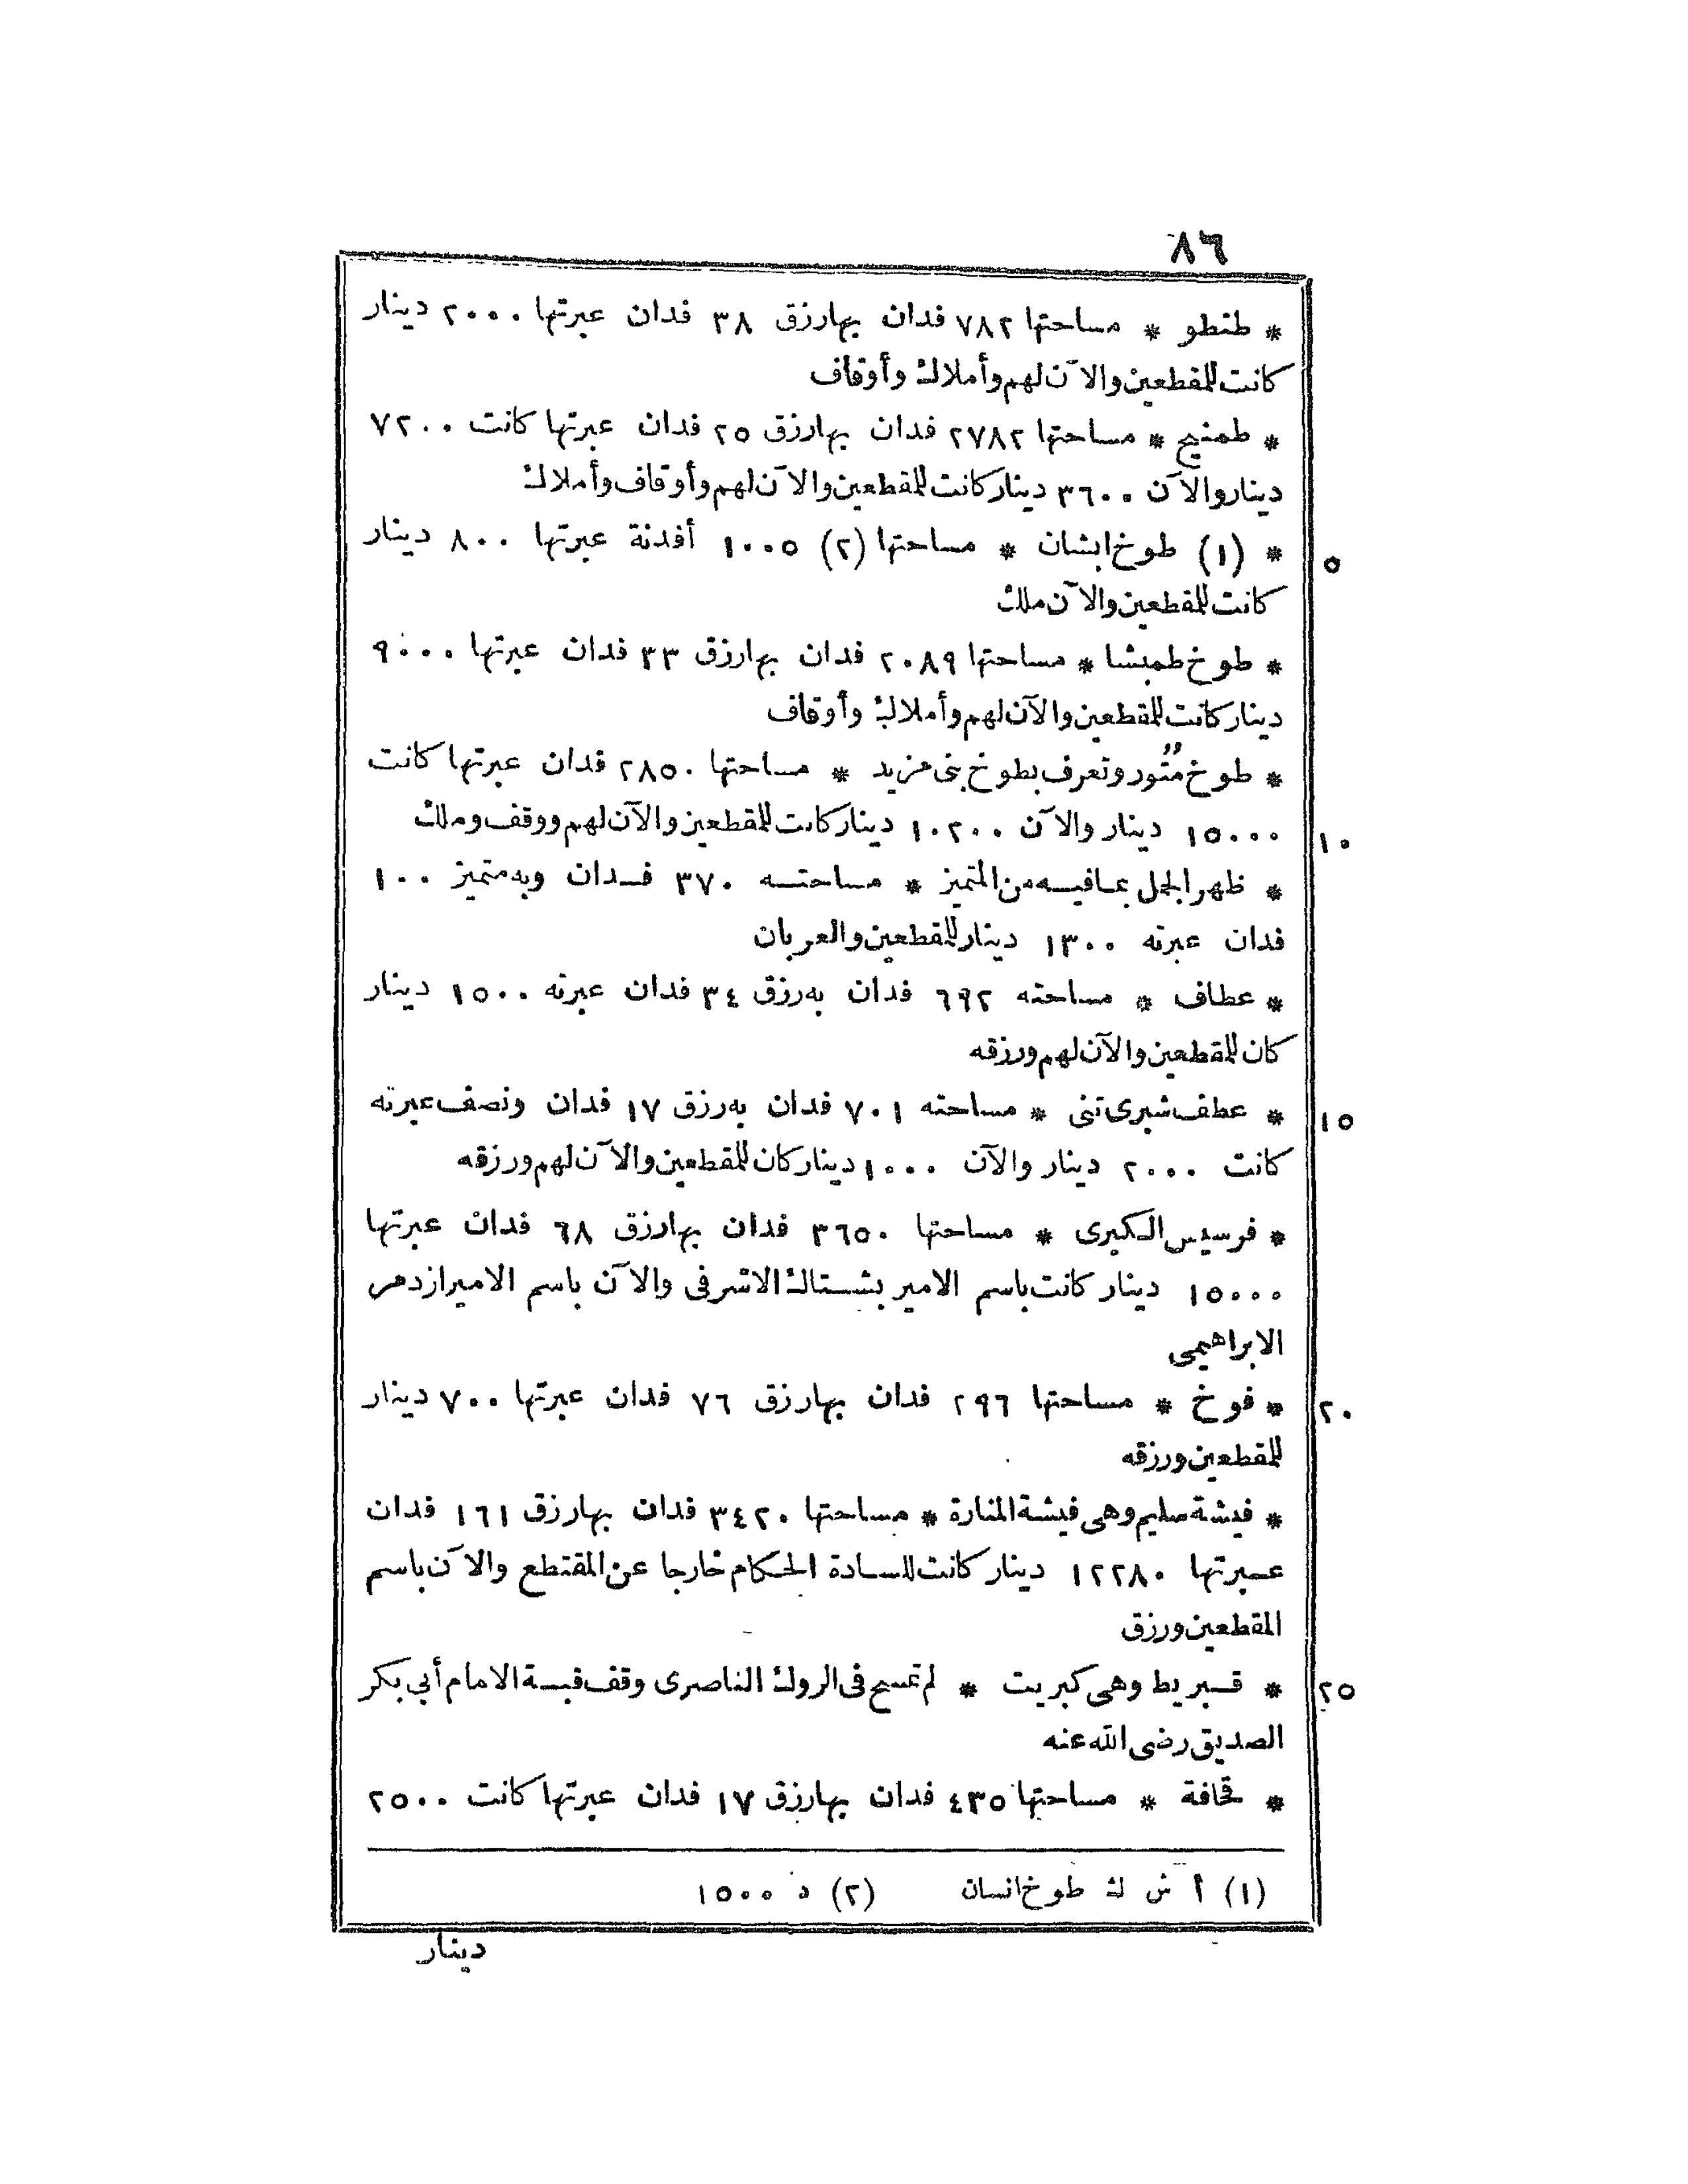 ٨٦
* طنطو * مساحتها ٧٨٢ فدان بهارزق ٣٨ فدان عبرتها ٢٠٠٠ دينار
كانت للمقطعين والآن لهم وأملاك وأوقاف
* طمنيج * مساحتها ٢٧٨٢ فدان بهارزق ٢٥ فدان عبرتها كانت ٧٢٠٠
دينار والآن ٣٦٠٠ دينار كانت للمقطعين والآن لهم وأوقاف وأملاك
٥ * (١) طوخ ابشان * مساحتها (٢) ١٠٠٥ أفدنة عبرتها ٨٠٠ دينار
كانت للمقطعين والآن ملك
* طوخ طمبشا * مساحتها ٢٠٨٩ فدان بهارزق ٣٣ فدان عبرتها ٩٠٠٠
دينار كانت للمقطعين والآن لهم وأملاك وأوقاف
* طوخ مُتُور وتعرف بطوخ بنى مزيد * مساحتها ٢٨٥٠ فدان عبرتها كانت
١٠ ١٥٠٠٠ دينار والآن ١٠٢٠٠ دينار كانت للمقطعين والآن لهم ووقف وملك
* ظهر الجمل بما فيه من المتميز * مساحته ٣٧٠ فدان وبه متميز ١٠٠
فدان عبرته ١٣٠٠ دينار للمقطعين والعربان
* عطاف * مساحته ٦٩٢ فدان به رزق ٣٤ فدان عبرته ١٥٠٠ دينار
كان للمقطعين والآن لهم ورزقه
١٥ * عطف شبرى تنى * مساحته ٧٠١ فدان به رزق ١٧ فدان ونصف عبرته
كانت ٢٠٠٠ دينار والآن ١٠٠٠ دينار كان للمقطعين والآن لهم ورزقه
* فرسيس الكبرى * مساحتها ٣٦٥٠ فدان بهارزق ٦٨ فدان عبرتها
١٥٠٠٠ دينار كانت باسم الامير بشتاك الاشرفى والآن باسم الامير ازدمر
الابراهيمى
٢٠ * فوخ * مساحتها ٢٩٦ فدان بهارزق ٧٦ فدان عبرتها ٧٠٠ دينار
للمقطعين ورزقه
* فيشة سليم وهى فيشة المنارة * مساحتها ٣٤٢٠ فدان بهارزق ١٦١ فدان
عبرتها ١٢٢٨٠ دينار كانت للسادة الحكام خارجا عن المقتطع والآن باسم
المقطعين ورزق
٢٥ * قبريط وهى كبريت * لم تمسح فى الروك الناصرى وقف قبة الامام أبي بكر
الصديق رضى الله عنه
* قحافة * مساحتها ٤٣٥ فدان بهارزق ١٧ فدان عبرتها كانت ٢٥٠٠
(١) أ ش ك طوخ انسان (٢) د ١٥٠٠
دينار